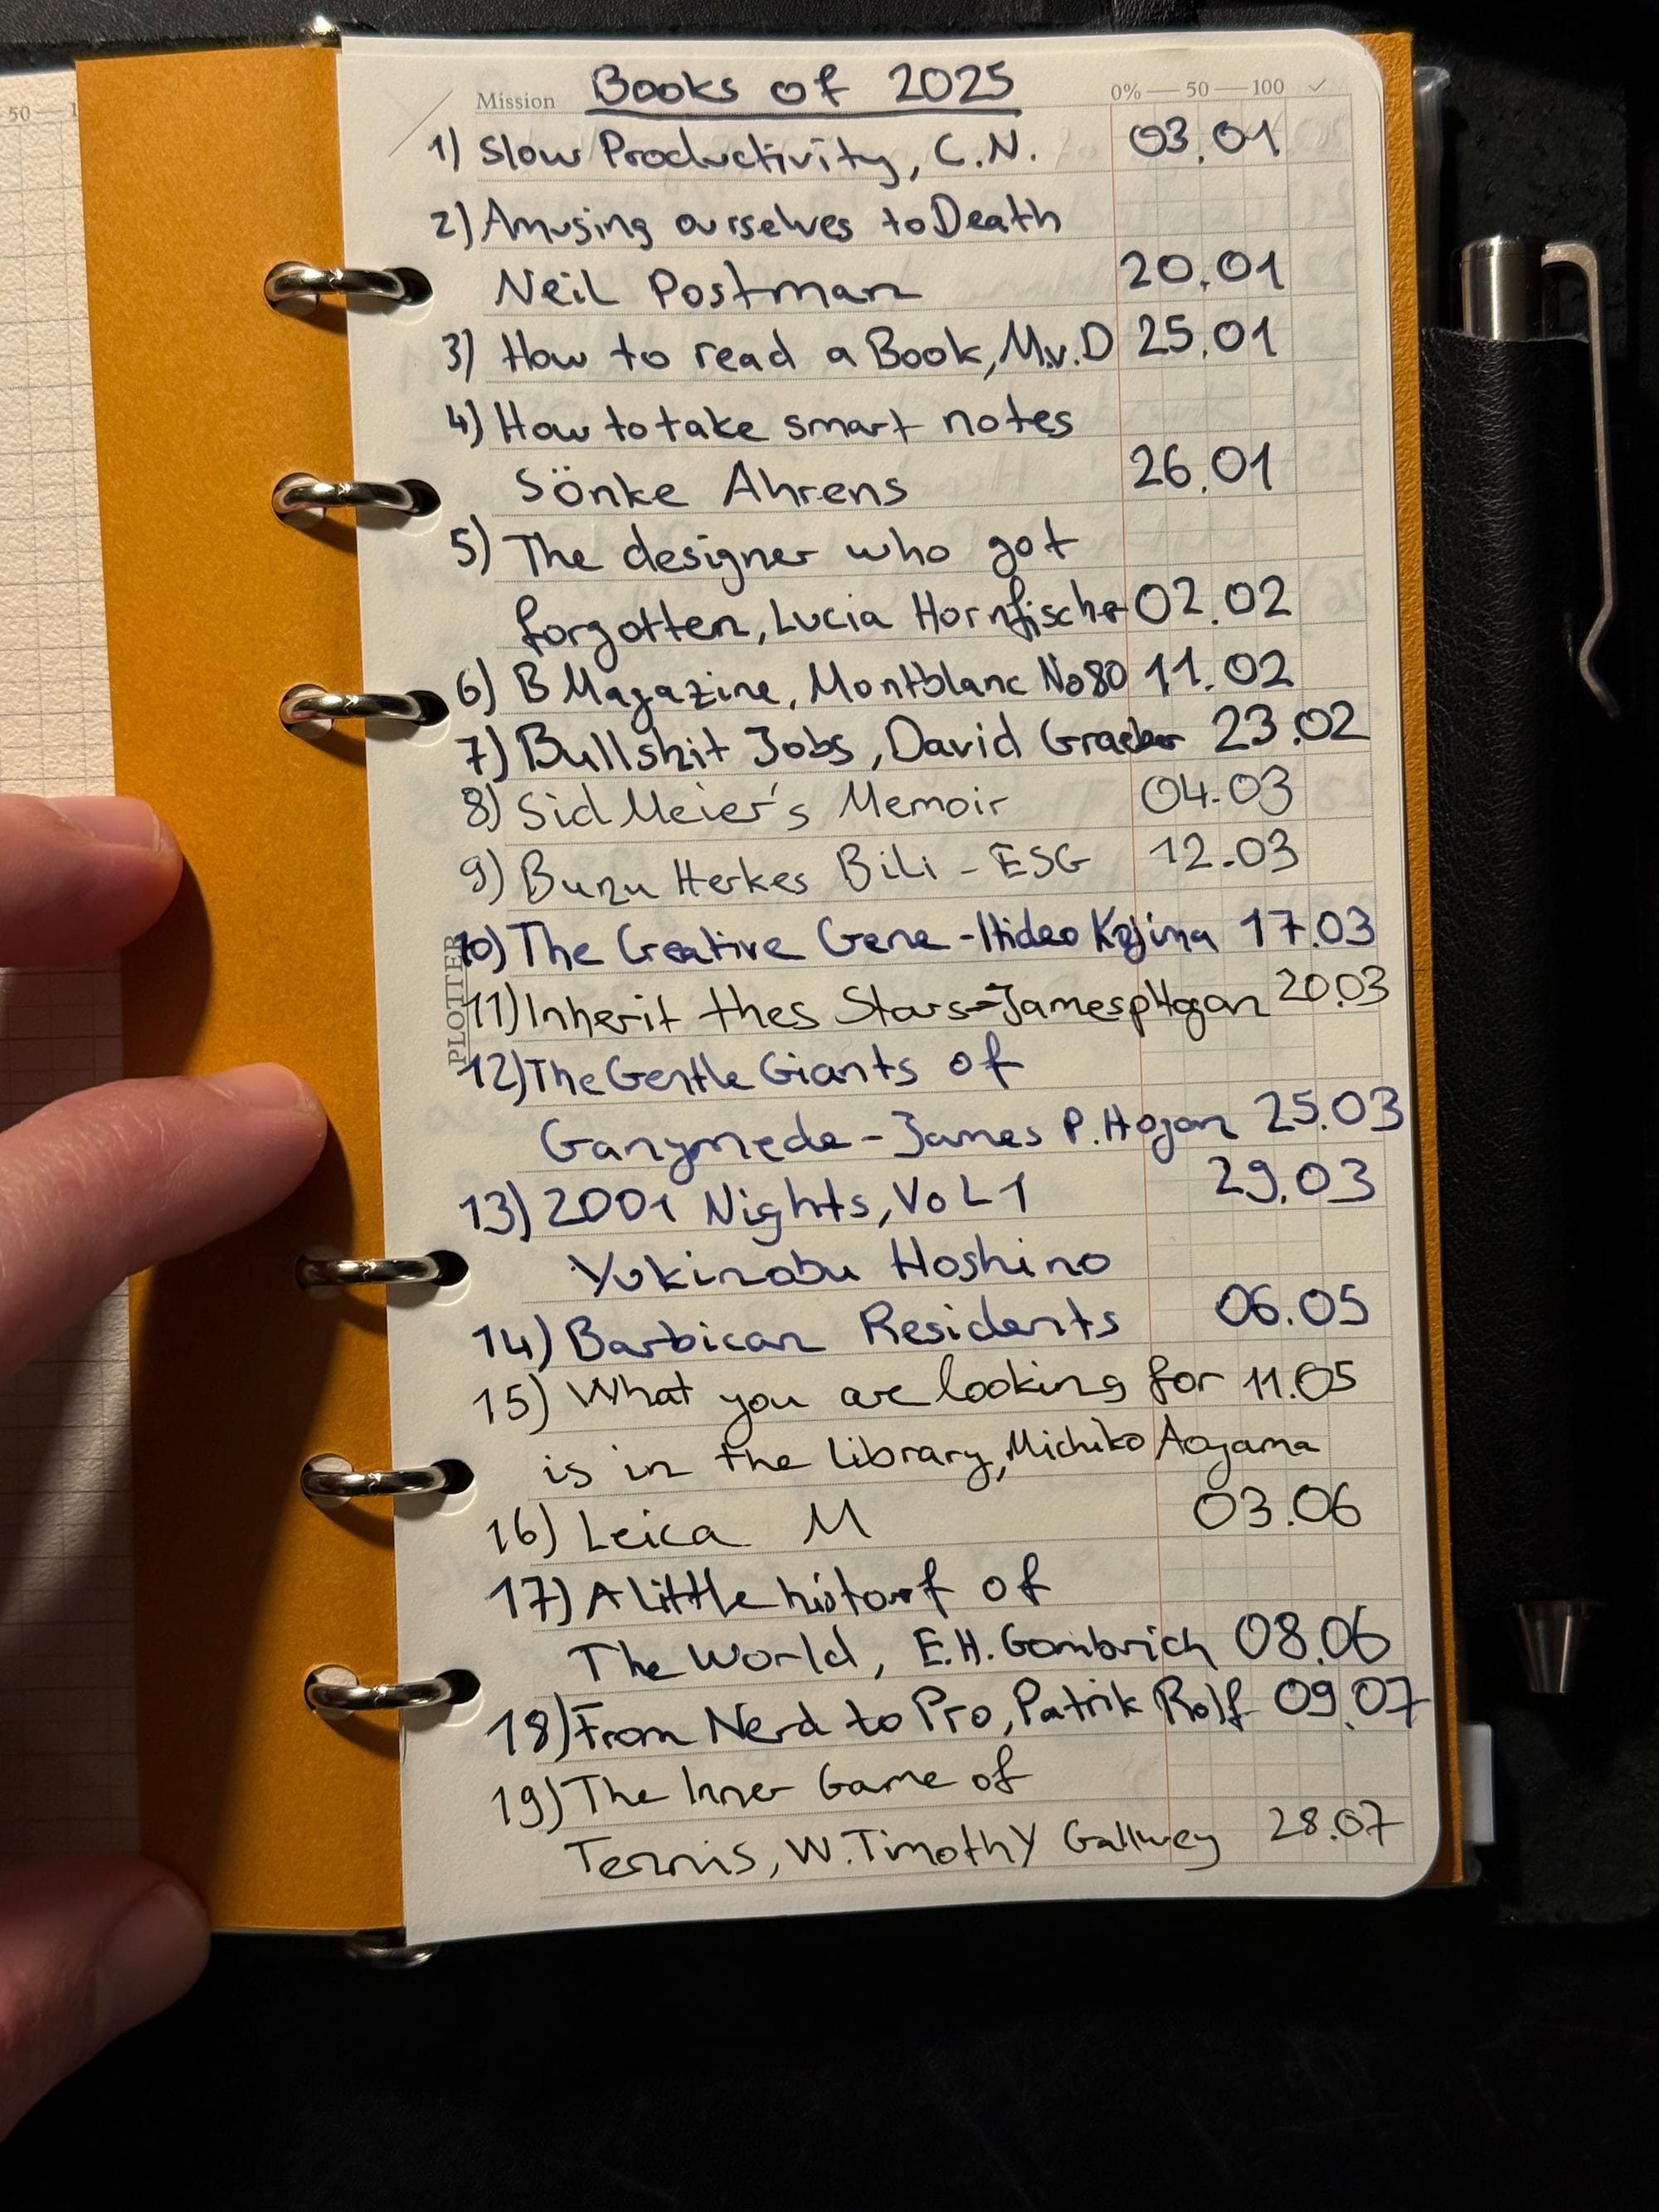 50 — 1
Mission Books of 2025 0% — 50 — 100 ✓
1) Slow Productivity, C.N. 03.01
2) Amusing ourselves to Death
Neil Postman 20.01
3) How to read a Book, M.v.D 25.01
4) How to take smart notes
Sönke Ahrens 26.01
5) The designer who got
forgotten, Lucia Hornfischer 02.02
6) B Magazine, Montblanc No80 11.02
7) Bullshit Jobs, David Graeber 23.02
8) Sid Meier's Memoir 04.03
9) Bunu Herkes Bili - ESG 12.03
10) The Creative Gene - Hideo Kojima 17.03
PLOTTER
11) Inherit thes Stars - James p Hogan 20.03
12) The Gentle Giants of
Ganymede - James P. Hogan 25.03
13) 2001 Nights, Vol 1 29.03
Yukinobu Hoshino
14) Barbican Residents 06.05
15) What you are looking for 11.05
is in the library, Michiko Aoyama
16) Leica M 03.06
17) A little history of
The World, E.H. Gombrich 08.06
18) From Nerd to Pro, Patrik Rolf 09.07
19) The Inner Game of
Tennis, W. Timothy Gallwey 28.07